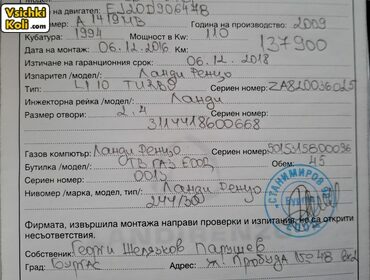 Vsichki
Koli.com
на двигател: EJ20D906478
А 1419 НВ Година на производство: 2009
Кубатура: 1994 Мощност в Kw: 110
Дата на монтаж: 06.12.2016 137900
Изтичане на гаранционния срок: 06.12.2018
Изпарител/модел/: Ланди Ренцо
Тип: LI 10 TURBO Сериен номер: ZA82003602S
Инжекторна рейка/модел/: Ланди
Размер отвори: 2,4
3114418600668
Газов компютър: Ланди Ренцо Сериен номер: 5015:15B00036
Бутилка /модел/: СТЗ ГАЗ ЕООД Обем: 45
Сериен номер: 0013
Нивомер /марка, модел, тип/: Ланди Ренцо
244/30
Фирмата, извършила монтажа направи проверки и изпитания, не са открити
несъответствия.
СТАНИМИРОВ
Собственик: Георги Желязков Парушев
Град: Бургас Адрес: ж. Пробуда № 48 вх2